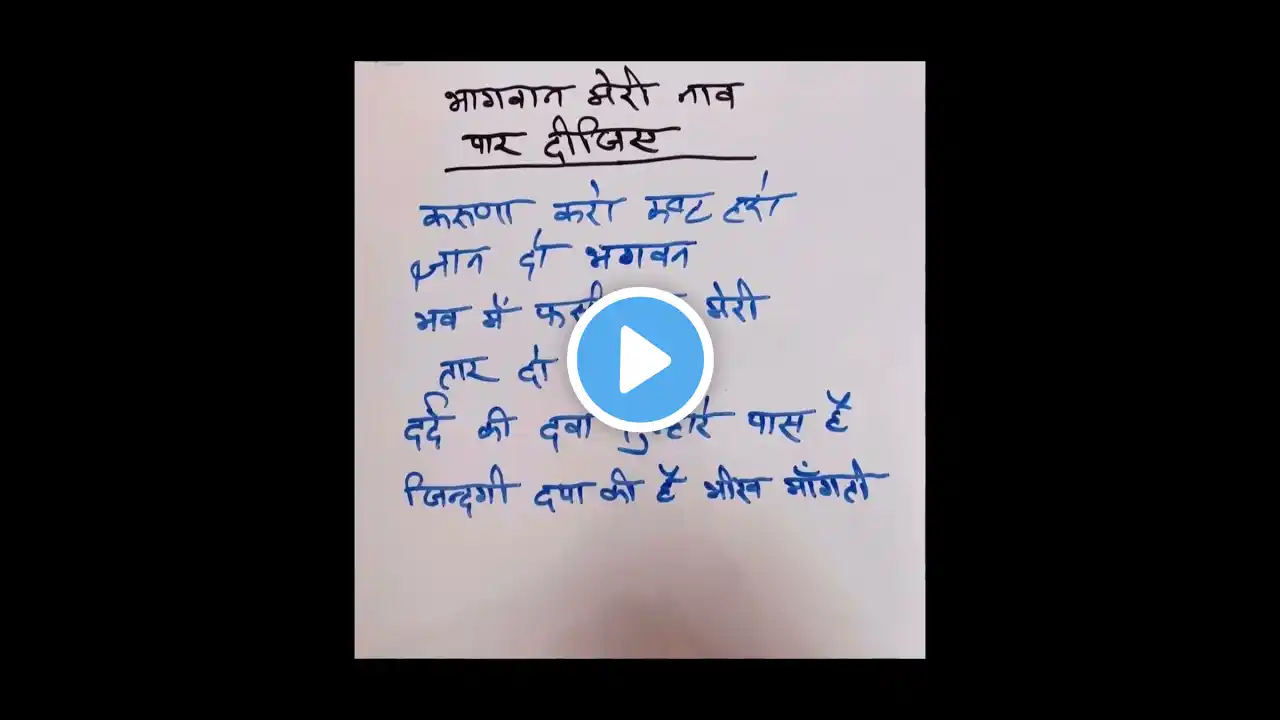 भागवान मेरी नाव
पार दीजिए
करूणा करो कष्ट हरो
ज्ञान दो भगवन
भव में फसी मेरी
तार दो
दर्द की दवा तुम्हारे पास है
जिन्दगी दया की है भीख माँगती